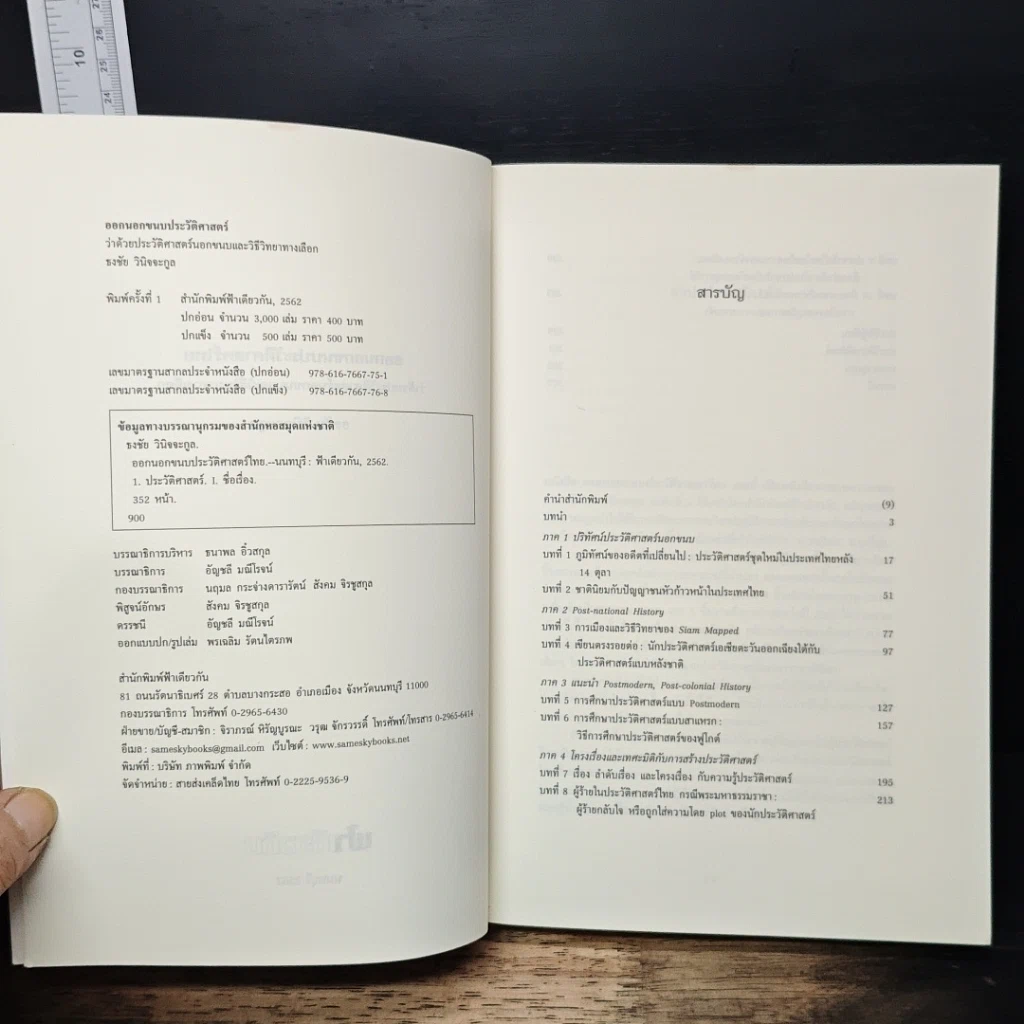 10
26
25
24
ออกนอกขนบประวัติศาสตร์
ว่าด้วยประวัติศาสตร์นอกขนบและวิธีวิทยาทางเลือก
ธงชัย วินิจจะกูล
พิมพ์ครั้งที่ 1 สำนักพิมพ์ฟ้าเดียวกัน, 2562
ปกอ่อน จำนวน 3,000 เล่ม ราคา 400 บาท
ปกแข็ง จำนวน 500 เล่ม ราคา 500 บาท
เลขมาตรฐานสากลประจำหนังสือ (ปกอ่อน) 978-616-7667-75-1
เลขมาตรฐานสากลประจำหนังสือ (ปกแข็ง) 978-616-7667-76-8
ข้อมูลทางบรรณานุกรมของสำนักหอสมุดแห่งชาติ
ธงชัย วินิจจะกูล.
ออกนอกขนบประวัติศาสตร์ไทย.--นนทบุรี : ฟ้าเดียวกัน, 2562.
1. ประวัติศาสตร์. I. ชื่อเรื่อง.
352 หน้า.
900
บรรณาธิการบริหาร ธนาพล อิ๋วสกุล
บรรณาธิการ อัญชลี มณีโรจน์
กองบรรณาธิการ นฤมล กระจ่างดารารัตน์ สังคม จิรชูสกุล
พิสูจน์อักษร สังคม จิรชูสกุล
ดรรชนี อัญชลี มณีโรจน์
ออกแบบปก/รูปเล่ม พรเฉลิม รัตนไตรภพ
สำนักพิมพ์ฟ้าเดียวกัน
81 ถนนรัตนาธิเบศร์ 28 ตำบลบางกระสอ อำเภอเมือง จังหวัดนนทบุรี 11000
กองบรรณาธิการ โทรศัพท์ 0-2965-6430
ฝ่ายขาย/บัญชี-สมาชิก : จิราภรณ์ หิรัญบูรณะ วรุฒ จักรวรรดิ์ โทรศัพท์/โทรสาร 0-2965-6414
อีเมล : sameskybooks@gmail.com เว็บไซต์ : www.sameskybooks.net
พิมพ์ที่ : บริษัท ภาพพิมพ์ จำกัด
จัดจำหน่าย : สายส่งเคล็ดไทย โทรศัพท์ 0-2225-9536-9
สารบัญ
คำนำสำนักพิมพ์ (9)
บทนำ 3
ภาค 1 ปริทัศน์ประวัติศาสตร์นอกขนบ
บทที่ 1 ภูมิทัศน์ของอดีตที่เปลี่ยนไป : ประวัติศาสตร์ชุดใหม่ในประเทศไทยหลัง 17
14 ตุลา
บทที่ 2 ชาตินิยมกับปัญญาชนหัวก้าวหน้าในประเทศไทย 51
ภาค 2 Post-national History
บทที่ 3 การเมืองและวิธีวิทยาของ Siam Mapped 77
บทที่ 4 เขียนตรงรอยต่อ : นักประวัติศาสตร์เอเชียตะวันออกเฉียงใต้กับ 97
ประวัติศาสตร์แบบหลังชาติ
ภาค 3 แนะนำ Postmodern, Post-colonial History
บทที่ 5 การศึกษาประวัติศาสตร์แบบ Postmodern 127
บทที่ 6 การศึกษาประวัติศาสตร์แบบสาแหรก : 157
วิธีการศึกษาประวัติศาสตร์ของฟูโกต์
ภาค 4 โครงเรื่องและเทศะมิติกับการสร้างประวัติศาสตร์
บทที่ 7 เรื่อง ลำดับเรื่อง และโครงเรื่อง กับความรู้ประวัติศาสตร์ 195
บทที่ 8 ผู้ร้ายในประวัติศาสตร์ไทย กรณีพระมหาธรรมราชา : 213
ผู้ร้ายกลับใจ หรือถูกใส่ความโดย plot ของนักประวัติศาสตร์